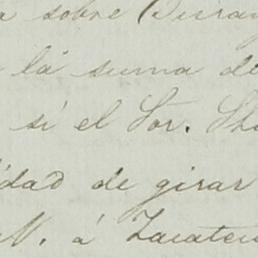 sobre Duran
la suma de
si el Sor.
dad de girar
N. á Zacatec